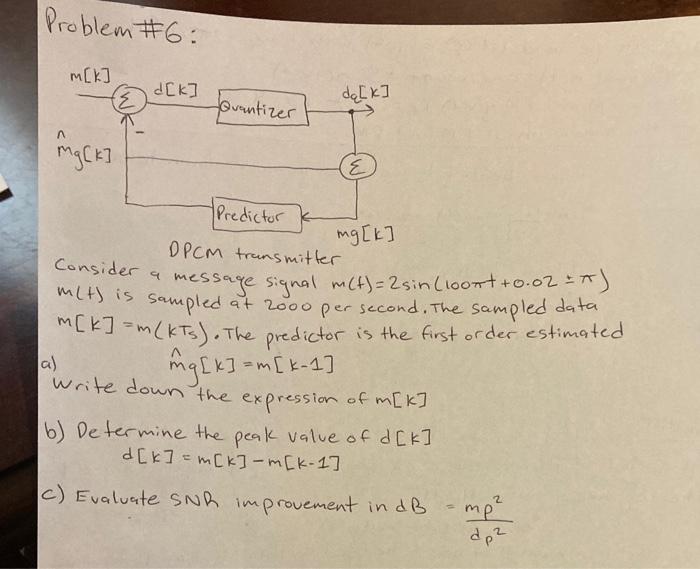 Problem #6:
m[k]
d[k]
dq[k]
Σ
Quantizer
-
^
mq[k]
Σ
Predictor
mq[k]
DPCM transmitter
Consider a message signal m(t)=2sin(100πt+0.02 ± π)
m(t) is sampled at 2000 per second. The sampled data
m[k]=m(kTs). The predictor is the first order estimated
a) m̂q[k]=m[k-1]
Write down the expression of m[k]
b) Determine the peak value of d[k]
d[k]=m[k]-m[k-1]
c) Evaluate SNR improvement in dB = mp²
dp²